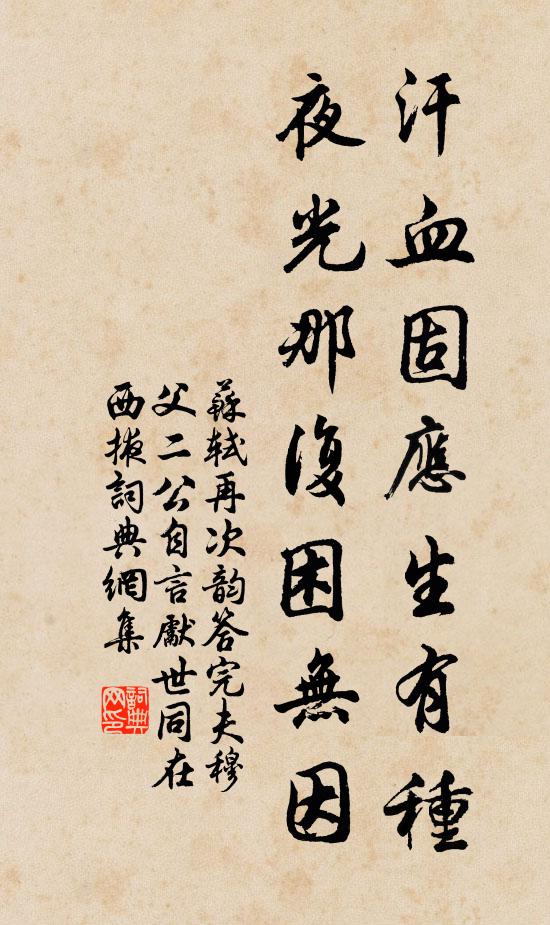 汗血固應生有種
夜光那復困無因
蘇軾再次韵答完夫穆
父二公自言獻世同在
西掖詞典網集
詞典网印